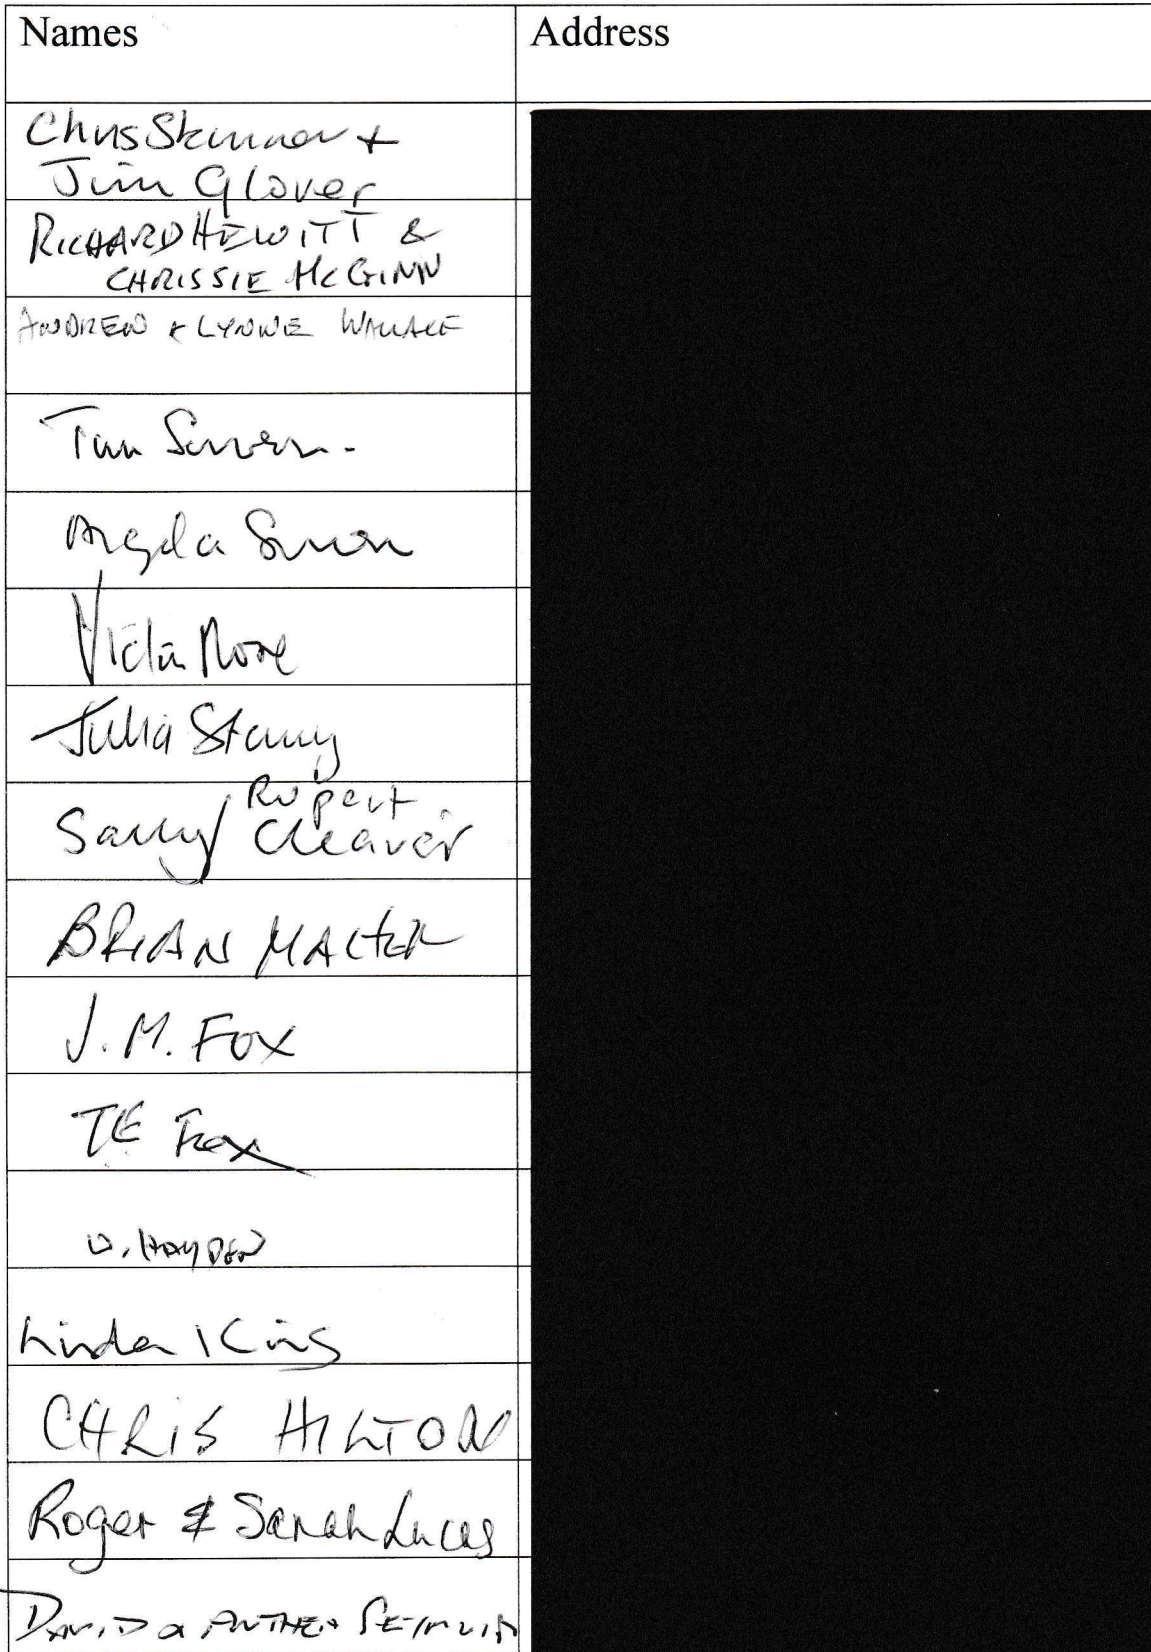 Names Address
Chris Skinner +
Jim Glover
RICHARD HEWITT &
CHRISSIE McGINN
ANDREW & LYNNE WALLACE
Tim
Angela
Julia
Rupert
Sally / Cleaver
BRIAN
J. M. FOX
TE Fox
D. HAYDEN
Linda King
CHRIS HILTON
Roger & Sarah Lucas
DAVID & ANTHEA